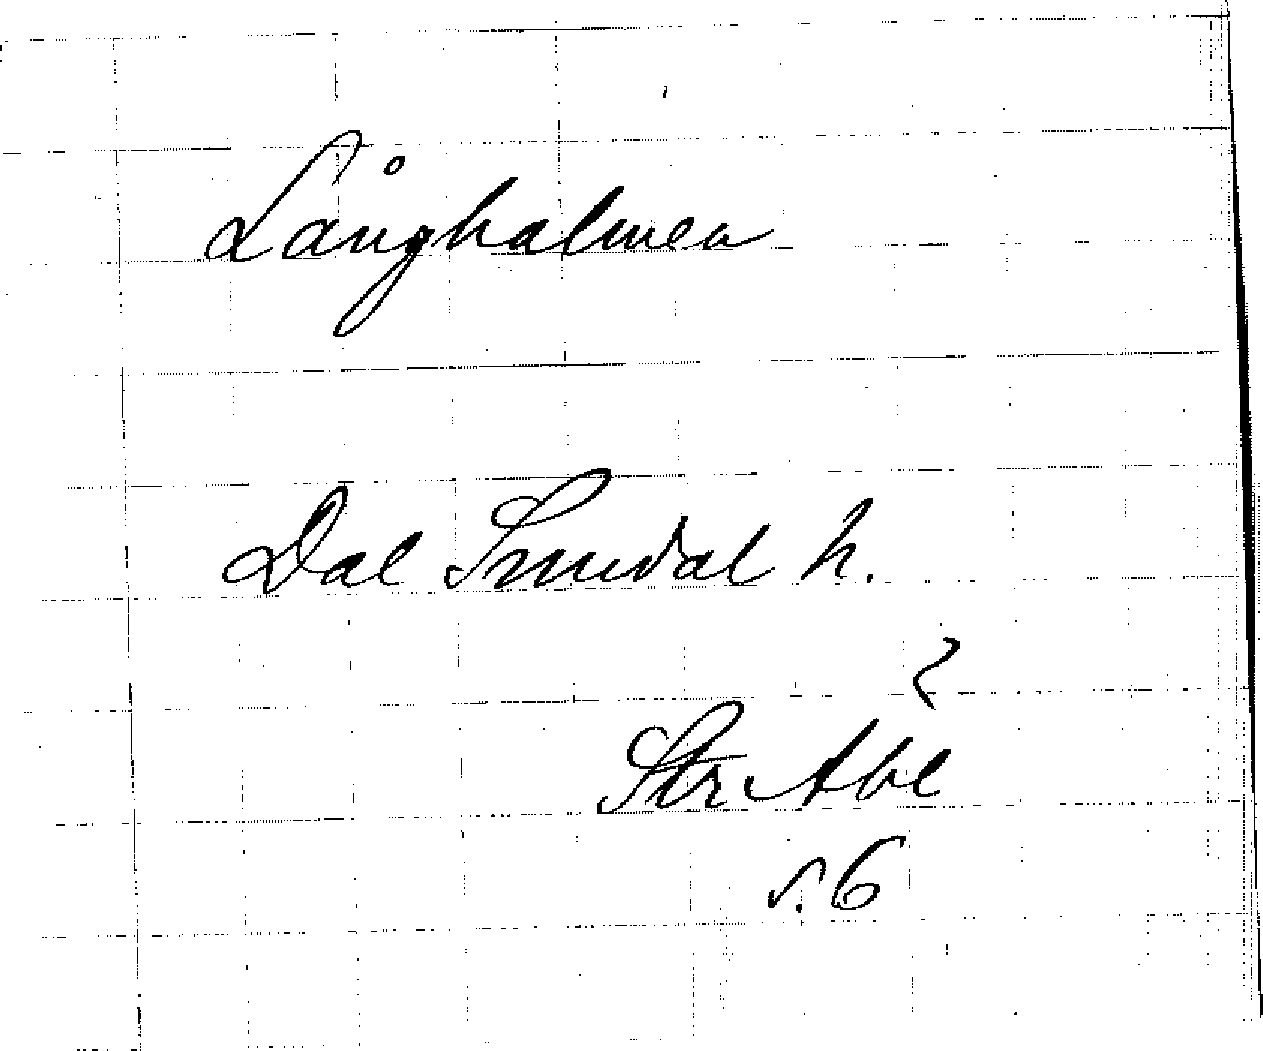 Långholmen
Dal Smedal h.
Str Abl
s. 6